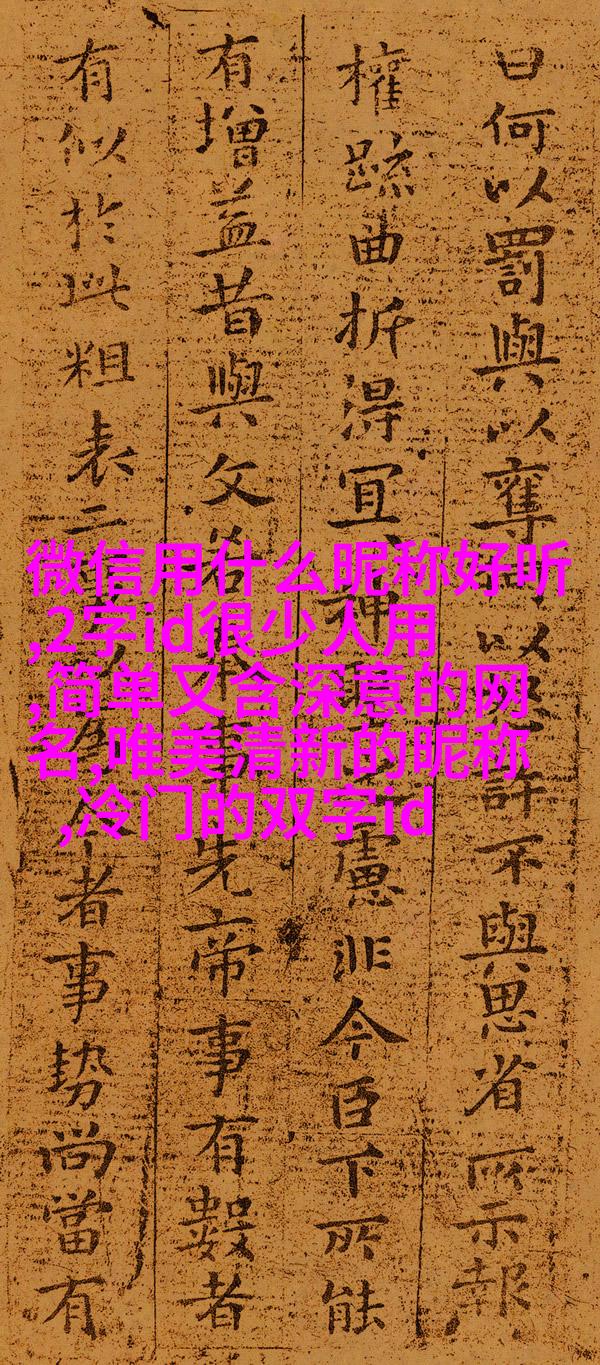 曰何以罰與以奪以許不與思省所示報
權疏曲折得宜神慮非今臣下所能
有增益昔與文若奉事先帝事有數者
有似於此粗表二今者事勢尚當有
微信用什么昵称好听
,2字id很少人用
,简单又含深意的网
名,唯美清新的昵称
,冷门的双字id